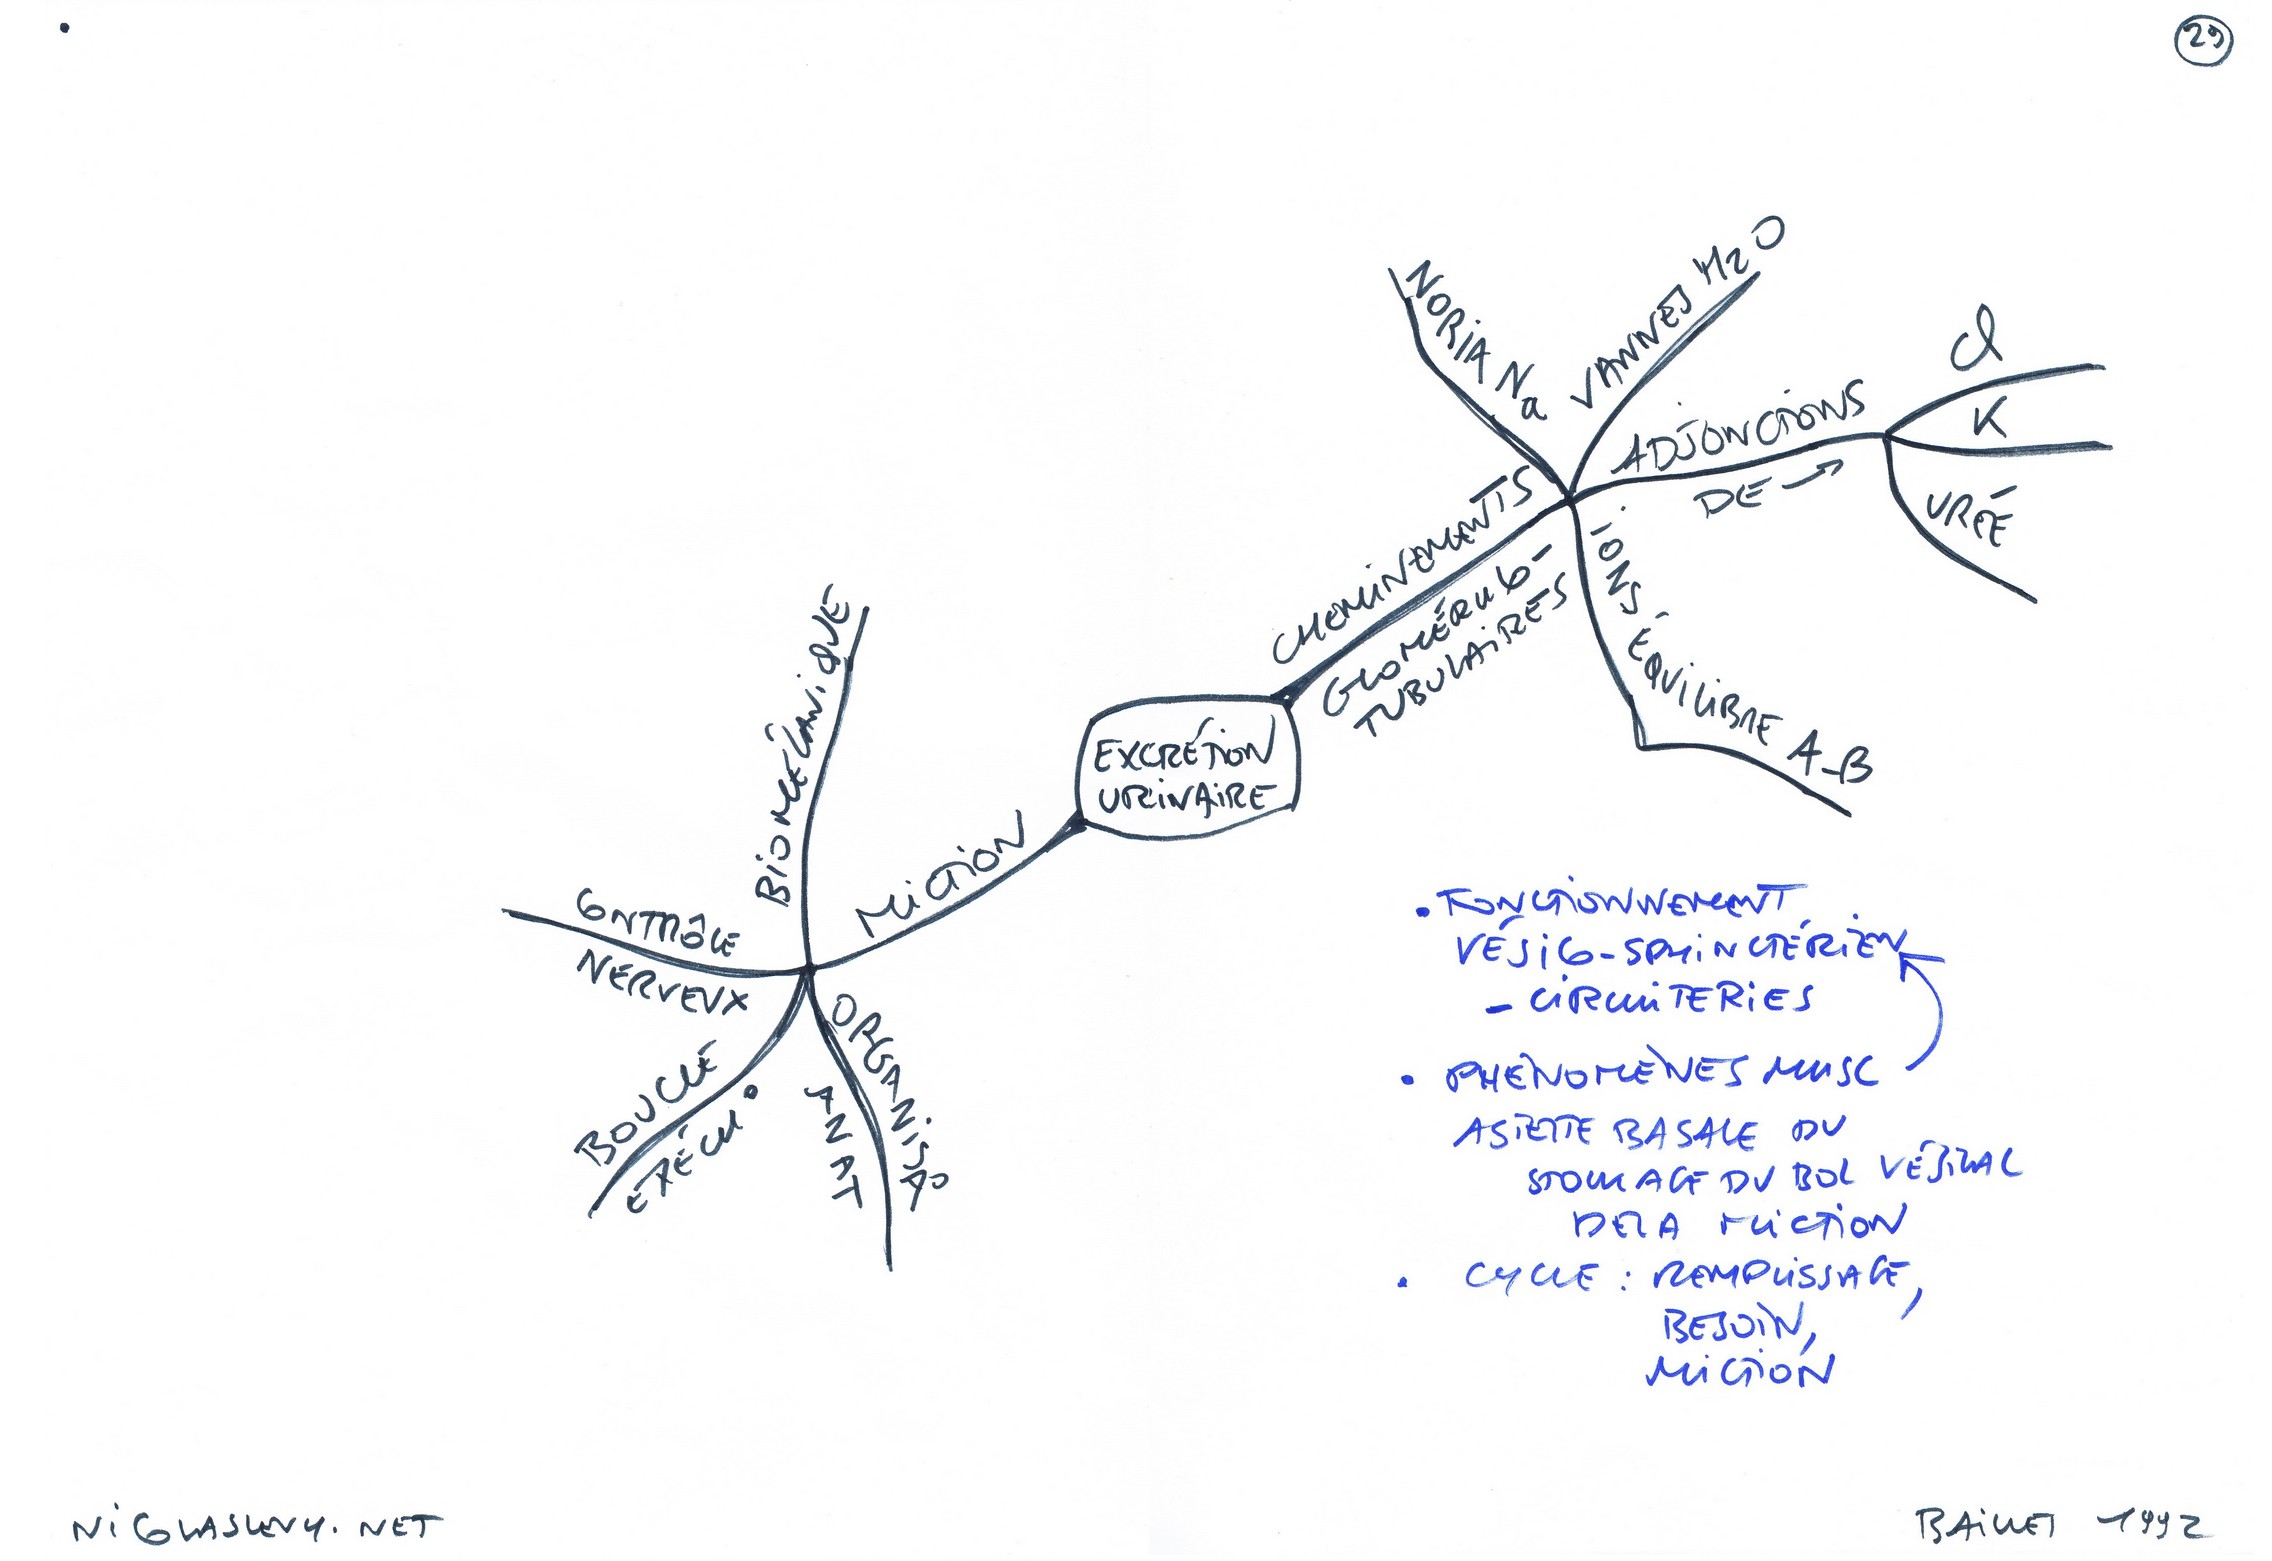 29
NORIA Na
VANNES H2O
ADJONCTIONS
DE →
Cl
K
URÉE
IONS. ÉQUILIBRE A-B
CHEMINEMENTS
GLOMÉRULO-
TUBULAIRES
EXCRÉTION
URINAIRE
MICTION
BIOMÉCANIQUE
CONTRÔLE
NERVEUX
BOUCLE
EXÉCU°
ORGANISA°
ANAT
• FONCTIONNEMENT
VÉSICO-SPHINCTÉRIEN
- CIRCUITERIES
• PHÉNOMÈNES MUSC
ASIETTE BASALE DU
STOCKAGE DU BOL VÉSICAL
DE LA MICTION
• CYCLE : REMPLISSAGE,
BESOIN,
MICTION
NICOLASLEVY.NET
BAILLET 1992